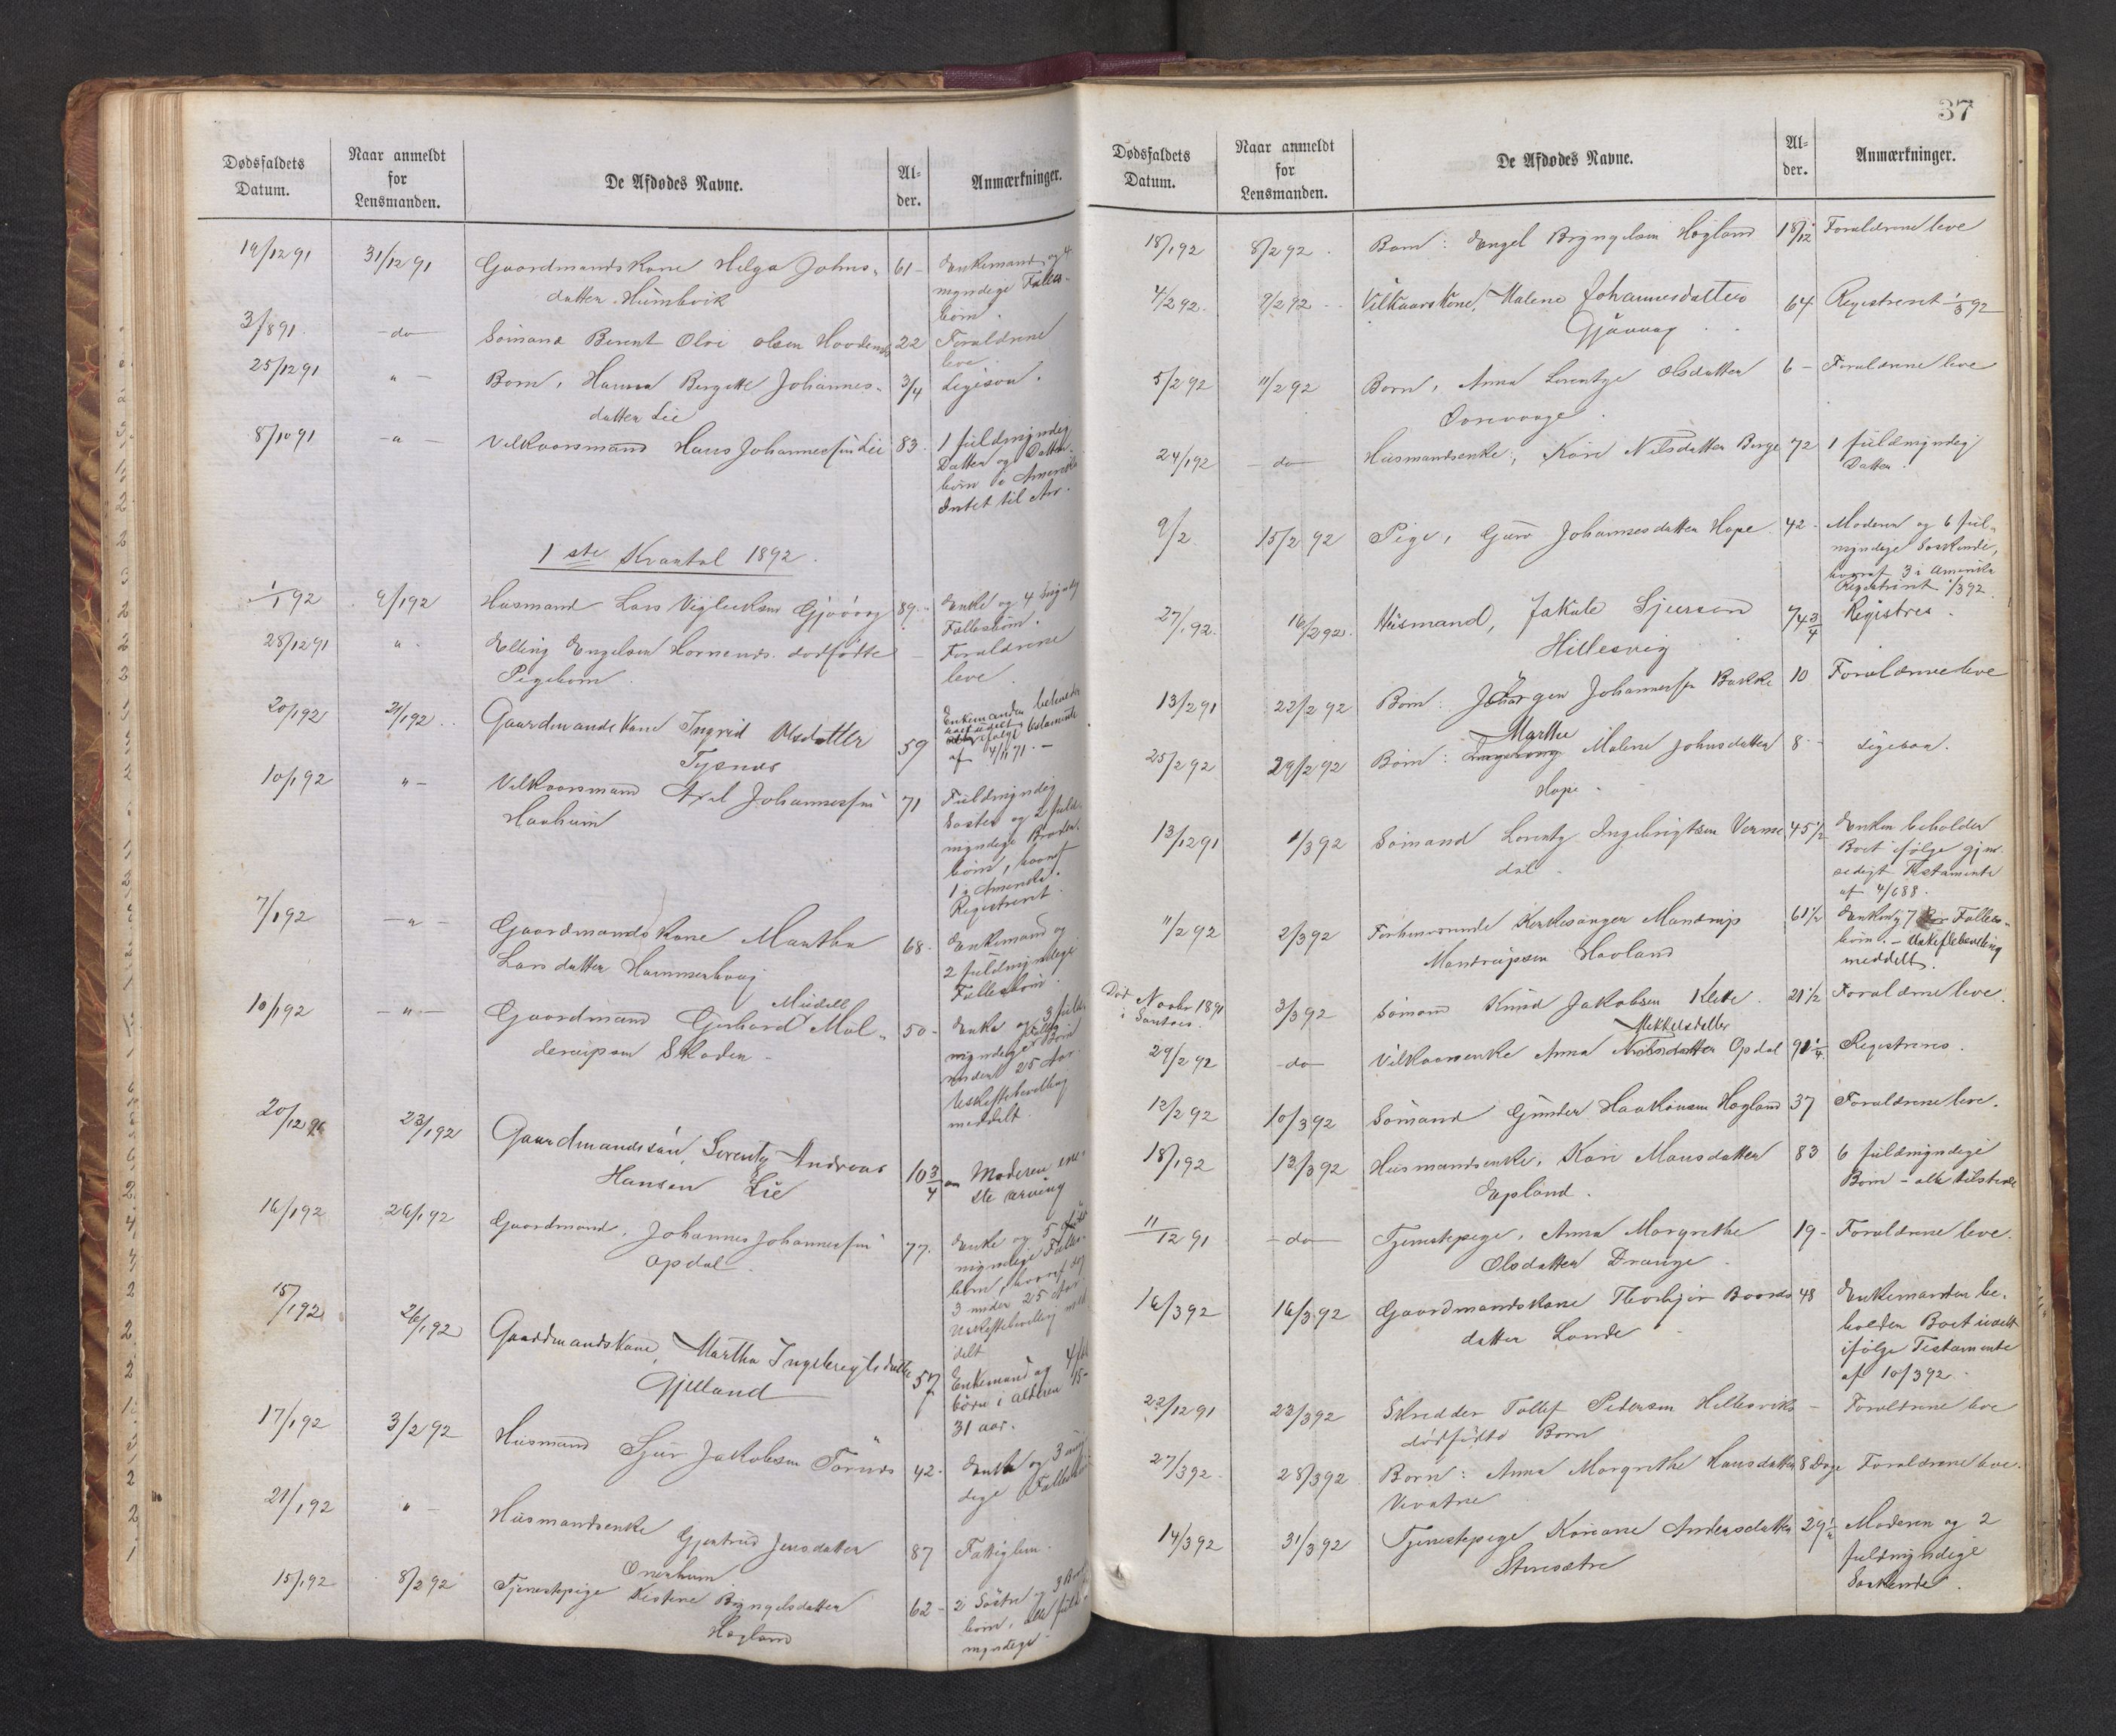 Dødsfaldets
Datum.
Naar anmeldt
for
Lensmanden.
De Afdødes Navne.
Al-
der.
Anmærkninger.
19/12 91 31/12 91 Gaardmandskone Helga Johns- 61 - Enkemand og 4
datter Humlevik myndige Fælles-
børn.
3/8 91 - do - Sømand Berent Olai Olsen 22 Forældrene
leve.
25/12 91 " - Barn, Hanna Bergitte Johannes- 3/4 Ligesom.
datter Lie
8/10 91 - " - Vilkaarsmand Hans Johannessen Lie 83. 1 fuldmyndig
Datter og Datter-
børn i Amerika
Intet til Arv.
1ste Kvartal 1892.
1/1 92 9/1 92 Husmand Lars Gjøvaag 89. - Enke og 4 myndig
Fællesbørn.
28/12 91 " - Elling Engelsen dødfødte - Forældrene
Pigebarn. leve.
20/1 92 21/1 92 Gaardmandskone Ingrid Olsdatter 59 Enkemanden beholder
Tysnes ifølge testamente
af 4/11 71. -
10/1 92 " - Vilkaarsmand Axel Johannessen 71 Fuldmyndig
Haaheim Søster og 2 fuld-
myndige Broder-
børn, hvoraf
1 i Amerika.
Registreret.
7/1 92 - " - Gaardmandskone Martha 68 - Enkemand og
Larsdatter Hammerhaug 2 fuldmyndige
Fællesbørn.
10/1 92 - " - Gaardmand Gerhard Midell Mul- 50 - Enke og 3 fuld-
derupsen Skaden - myndige Børn
under 25 Aar.
Uskiftebevilling
meddelt.
20/12 91 23/1 92 Gaardmandssøn, Lorentz Andreas 10 3/4 Moderen ene-
Hansen Lie ste arving
16/1 92 26/1 92 Gaardmand, Johannes Johannessen 77. Enke og 5
Opdal. myndige Fælles-
børn, hvoraf
3 under 25 Aar
Uskiftebevilling med-
delt
15/1 92 26/1 92 Gaardmandskone, Martha Ingebrigtsdatter 57 Enkemand og 4
Gjelland børn i alderen 15-
31 aar.
17/1 92 3/2 92 Husmand Sjur Jakobsen 42. Enke og 3
dige
21/1 92 " - Husmandsenke Gjertrud Jensdatter 87 Fattiglem.
Onarheim
15/1 92 8/2 92 Tjenestepige Kistine Bryngelsdatter 62 - 2 Søstre og 3
Høgland børn, alle fuld-
myndige.
37
Dødsfaldets
Datum.
Naar anmeldt
for
Lensmanden.
De Afdødes Navne.
Al-
der.
Anmærkninger.
18/1 92 8/2 92. Barn: Engel Bryngelsen Høgland 1 8/12 Forældrene leve
4/2 92. 9/2 92 - Vilkaarskone, Malene Johannesdatter 64 Registreret 1/3 92
Gjøvaag
5/2 92 11/2 92 Barn, Anna Lorentze Olsdatter 6 - Forældrene leve
24/1 92 - do Husmandsenke, Kari Nilsdatter Berge 72 1 fuldmyndig
Datter.
9/2. 15/2 92 Pige, Guro Johannesdatter Hope 42 - Moderen og 6 ful-
myndige Søskende,
hvoraf 3 i Amerika
Registreret 1/3 92.
27/1 92. 16/2 92. Husmand, Jakob Sjurson 74 3/4 Registres.
Hillesvig
13/2 91 22/2 92 Barn: Jørgen Johannessen Bakke 10 Forældrene leve
Marthe
25/2 92 29/2 92 Barn: Ingeborg Malene Johnsdatter 8 - Ligesaa.
Hope
13/12 91 1/3 92 Sømand Lorentz Ingebrigtsen Verme- 45 1/2 Enken beholder
dal Boet ifølge gjen-
sidigt Testamente
af 4/6 88.
11/2 92 2/3 92 Forhenværende Kirkesanger Mandrup 61 1/2 Enken og 7 Fælles-
Mandrupsen Havland børn. - Uskiftebevilling
meddelt.
Død Novbr 1891 3/3 92 Sømand Knud Jakobsen Klette 21 1/2 Forældrene leve.
i Santos.
Mikkelsdatter
29/2 92 - do - Vilkaarsenke Anna Opdal 91 1/4 Registreres.
12/2 92 10/3 92 Sømand Gunder Haakonsen Høgland 37 Forældrene leve.
18/1 92 13/3 92 Husmandsenke, Kari Monsdatter 83 6 fuldmyndige
Epland. Børn - alle tilstede
11/12 91 - do - Tjenestepige, Anna Margrethe 19 - Forældrene leve.
Olsdatter Drange
16/3 92 16/3 92 Gaardmandskone Thorbjør Baards- 48 Enkemanden be-
datter Lande holder Boet uskift
ifølge Testamente
af 10/3 92.
22/12 91 23/3 92 Skredder Tollef Pedersen Hillesviks - Forældrene leve
dødfødte Barn
27/3 92. 28/3 92 Barn: Anna Margrethe Hansdatter 8 Dage Forældrene leve.
14/3 92 31/3 92 Tjenestepige Koriane Andersdatter 29 1/2 Moderen og 2
fuldmyndige
Søskende.